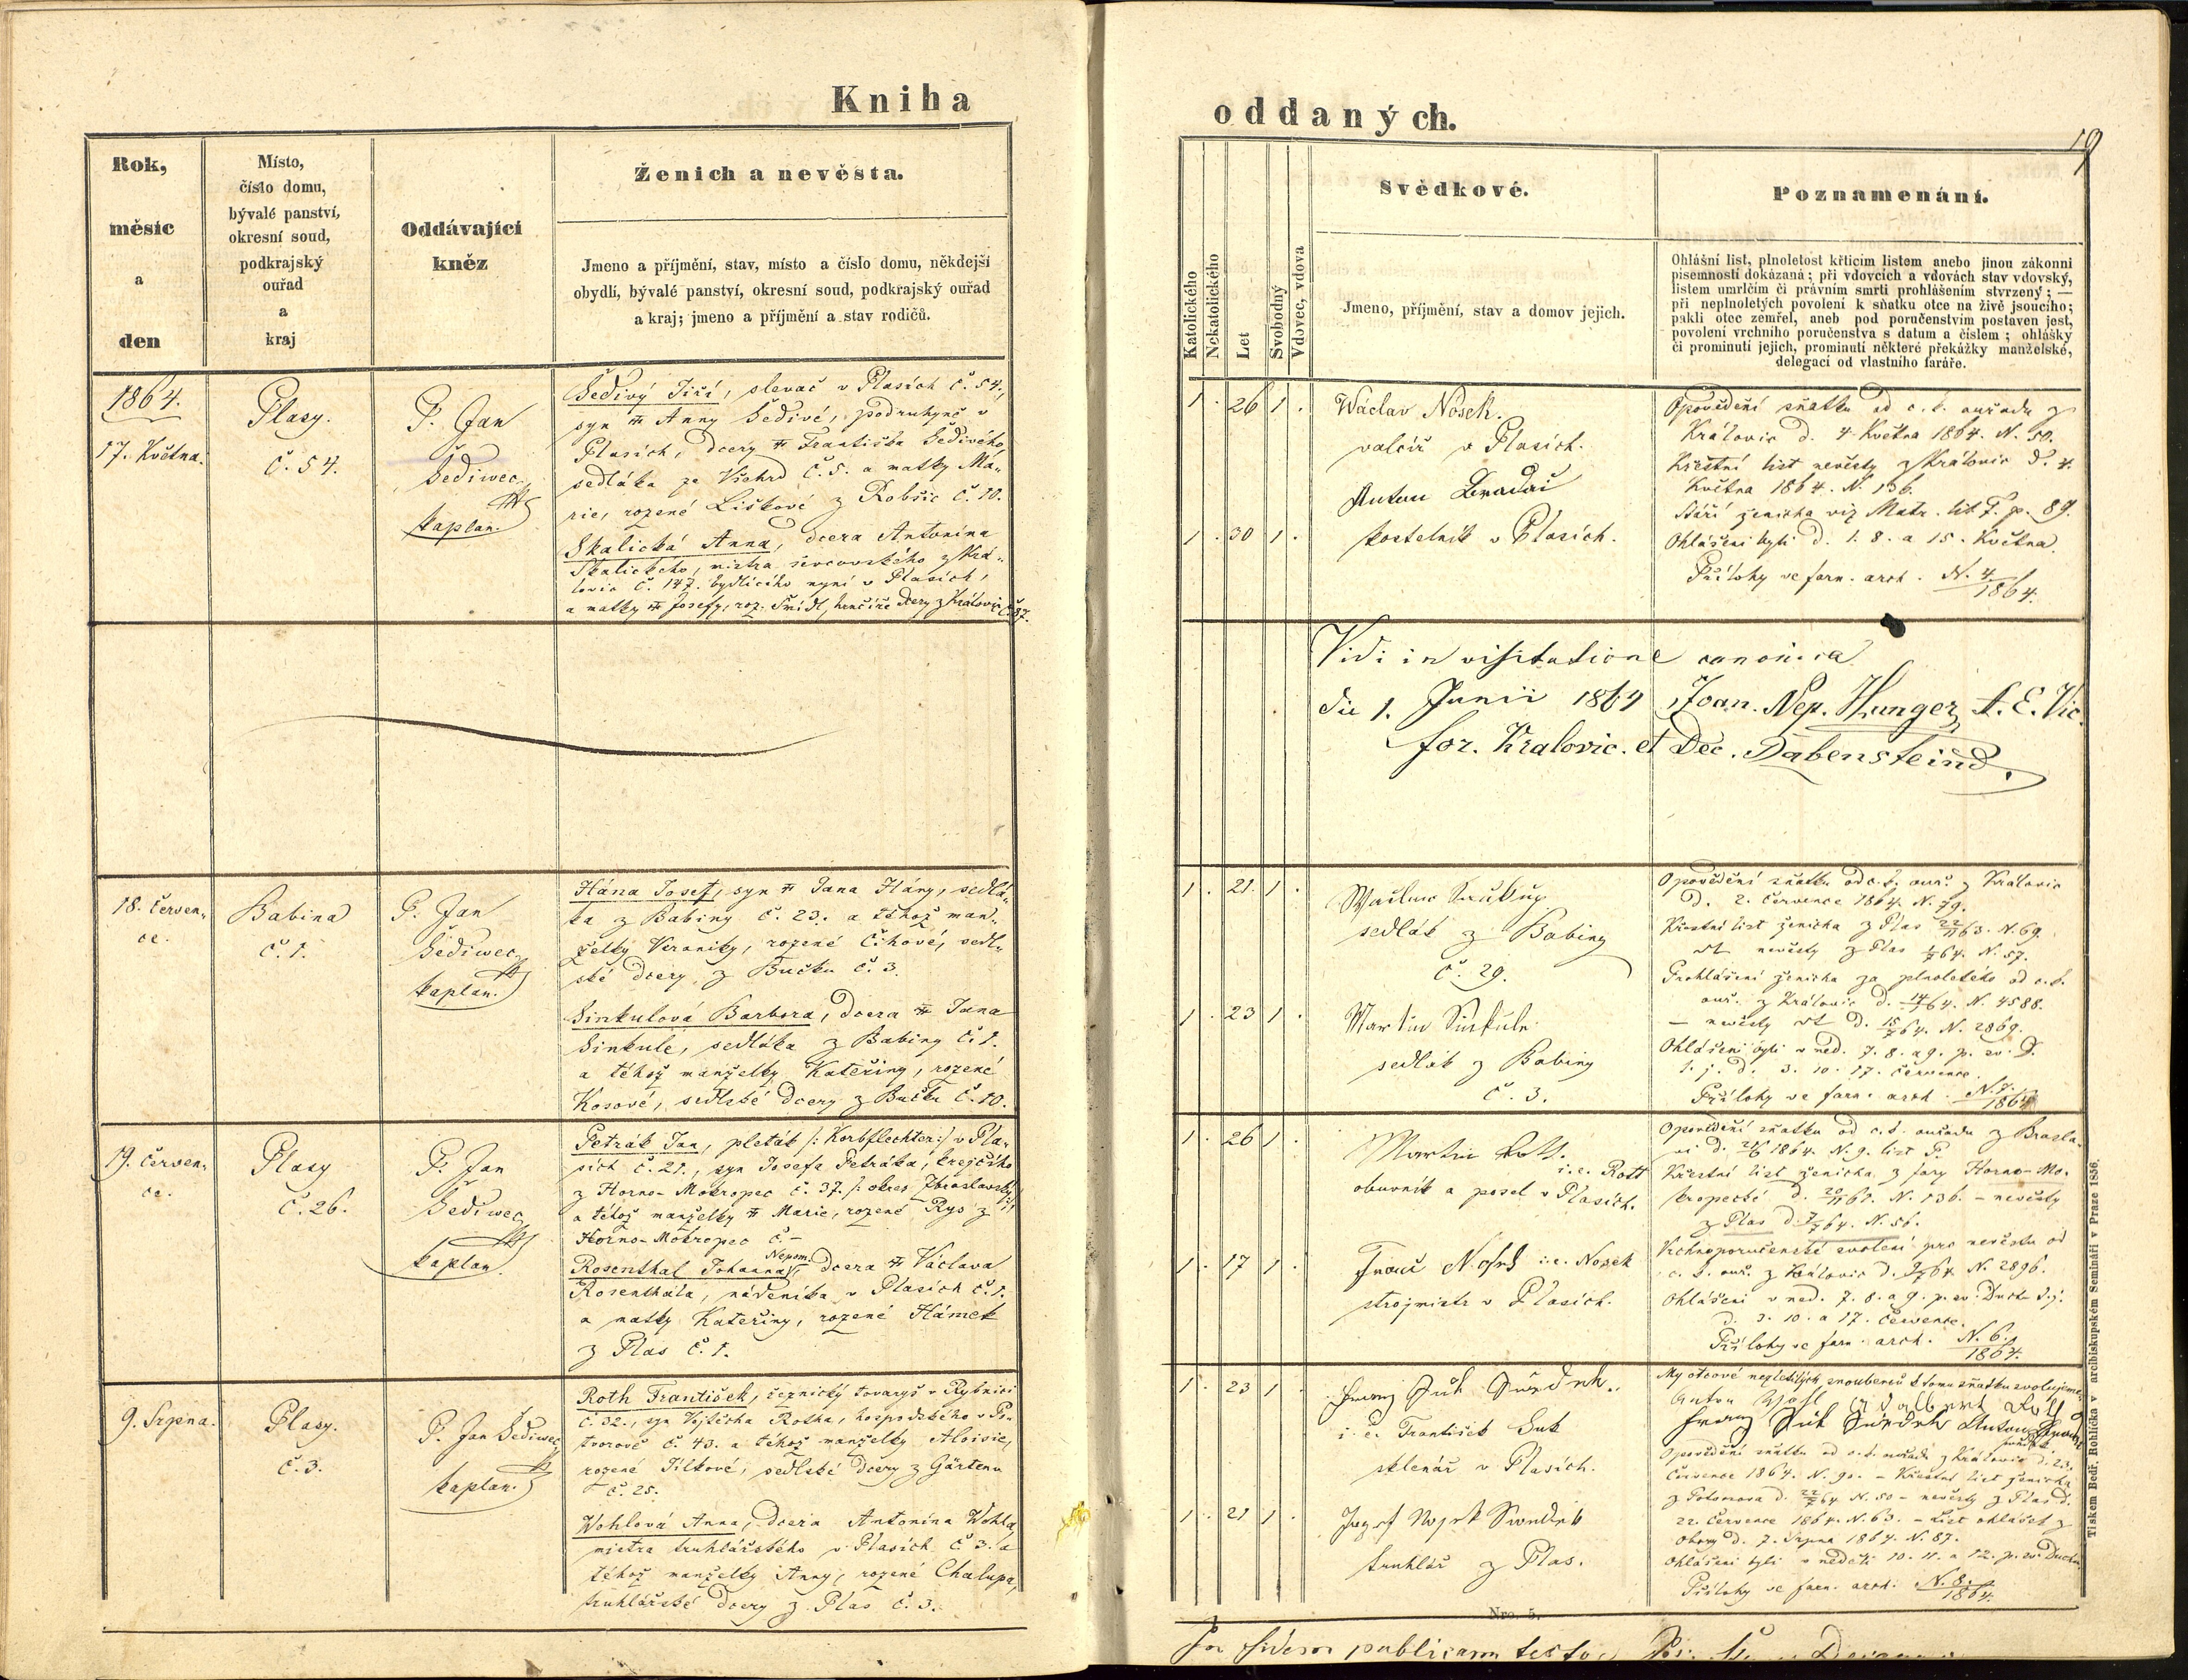 Kniha
Rok,
měsíc
a
den
Místo,
číslo domu,
bývalé panství,
okresní soud,
podkrajský
ouřad
a
kraj
Oddávající
kněz
Ženich a nevěsta.
Jmeno a příjmění, stav, místo a číslo domu, někdejší
obydlí, bývalé panství, okresní soud, podkrajský ouřad
a kraj; jmeno a příjmění a stav rodičů.
1864.
17. Května.
Plasy.
Č. 54.
P. Jan
Šediwec,
kaplan.
Šedivý Jiří, slevač v Plasích č. 54.,
syn Anny Šedivé, podruhyně v
Plasích, dcery Františka Šedivého
sedláka ze Všehrd č. 5. a matky Ma-
rie, rozené Liškové z Robšic č. 10.
Skalická Anna, dcera Antonína
Skalického, mistra ševcovského z Krá-
lovic č. 147. bydlícího nyní v Plasích,
a matky Josefy, roz. Šmídl, hrnčíře dcery z Královic č. 37.
18. Červen-
ce.
Babina
č. 1.
P. Jan
Šediwec,
kaplan.
Hána Josef, syn Jana Hány, sedlá-
ka z Babiny č. 23. a téhož man-
želky Veroniky, rozené Čihové, sedl-
ské dcery z Bučku č. 3.
Sinkulová Barbora, dcera Jana
Sinkule, sedláka z Babiny č. 1.
a téhož manželky Kateřiny, rozené
Kosové, sedlské dcery z Bučku č. 10.
19. Červen-
ce.
Plasy
č. 26.
P. Jan
Šediwec,
kaplan
Petrák Jan, pleták /: Korbflechter :/ v Pla-
sích č. 21., syn Josefa Petráka, krejčího
z Horno-Mokropec č. 37. /: okres Zbraslavský :/
a téhož manželky Marie, rozené Rys z
Horno-Mokropec č. –
Rosenthal Johanna Nepom., dcera Václava
Rosenthála, nádeníka v Plasích č. 1.
a matky Kateřiny, rozené Hámek
z Plas č. 1.
9. Srpna.
Plasy.
č. 3.
P. Jan Šediwec,
kaplan.
Roth František, řeznický tovaryš v Rybnici
č. 32., syn Vojtěcha Rotha, hospodského v Po-
tvorově č. 43. a téhož manželky Aloisie,
rozené Tilkové, sedlské dcery z Gärtenu
č. 25.
Wohlová Anna, dcera Antonína Wohla,
mistra truhlářského v Plasích č. 3. a
téhož manželky Anny, rozené Chalupa,
truhlářské dcery z Plas č. 3.
oddaných.
19
Katolického
Nekatolického
Let
Svobodný
Vdovec, vdova
Svědkové.
Jmeno, příjmění, stav a domov jejich.
Poznamenání.
Ohlášní list, plnoletost křticím listem anebo jinou zákonní
písemností dokázaná; při vdovcích a vdovách stav vdovský,
listem umrlčím či právním smrti prohlášením stvrzený; —
při neplnoletých povolení k sňatku otce na živě jsoucího;
pakli otec zemřel, aneb pod poručenstvím postaven jest,
povolení vrchního poručenstva s datum a číslem; ohlášky
či prominutí jejich, prominutí některé překážky manželské,
delegací od vlastního faráře.
1 . 26 1 .
Wáclav Nosek.
valcíř v Plasích.
Anton Bradáč
1 . 30 1 .
kostelník v Plasích.
Opovědění sňatku od c. k. ouřadu z
Královic d. 4. Května 1864. N. 50.
Křestní list nevěsty z Královic d. 4.
Května 1864. N. 136.
Stáří ženicha viz Matr. lit F. p. 89.
Ohlášeni byli d. 1. 8. a 15. Května.
Přílohy ve farn. arch. N. 4/1864.
Vidi in visitatione canonica
die 1. Junii 1864 Joan. Nep. Hunger, A. E. Vic.
for. Kralovic. et Dec. Rabensteind.
1 . 21. 1 .
sedlák z Babiny
č. 29.
1 . 23 1 .
Martin Sinkule
sedlák z Babiny
č. 3.
Opovědění sňatku od c. k. ouř. z Královic
d. 2. Července 1864. N. 79.
Křestní list ženicha z Plas 22/11 63. N. 69.
nevěsty z Plas 64. N. 57.
Prohlášení ženicha za plnoletého od c. k.
ouř. z Královic d. 64. N. 4588.
— nevěsty d. 64. N. 2869.
Ohlášeni byli v ned. 7. 8. a 9. p. sv. D.
t. j. d. 3. 10. 17. Července.
Přílohy ve farn. arch. N. 7./1864
1 . 26 1 .
Martin Rott.
i. e. Rott
obuvník a posel v Plasích.
1 . 17 1 .
Franc Nosek i. e. Nosek
strojmistr v Plasích.
Opovědění sňatku od c. k. ouřadu z Zbrasla-
vi d. 1864. N. 9. list P.
Křestní list ženicha z fary Horno-Mo-
kropecké d. 61. N. 136. – nevěsty
z Plas d. 64. N. 56.
Vrchnoporučenské svolení pro nevěstu od
c. k. ouř. z Královic d. 64. N. 2896.
Ohlášeni v ned. 7. 8. a 9. p. sv. Duchu t. j.
d. 3. 10. a 17. Července.
Přílohy ve farn. arch. N. 6./1864.
1 . 23 1 .
Franz Suk Svědek.
i. e. František Suk
sklenář v Plasích.
1 . 21 1 .
truhlář z Plas.
My otcové nezletilých snoubenců k tomu sňatku svolujeme.
Anton Wohl Adalbert Roth
Franz Suk Svědek Anton
svědek.
Opovědění sňatku od c. k. ouřadu z Královic d. 23.
Července 1864. N. 90. – Křestní list ženicha
z Potvorova d. 64 N. 50 – nevěsty z Plas d.
22. Července 1864. N. 63. – List ohlášek z
Obory d. 7. Srpna 1864. N. 87.
Ohlášeni byli v neděli 10. 11. a 12. p. sv. Duchu.
Přílohy ve farn. arch. N. 8./1864.
Nro. 5.
Tiskem Bedř. Rohlíčka v arcibiskupském Semináři v Praze 1856.
publicam testor